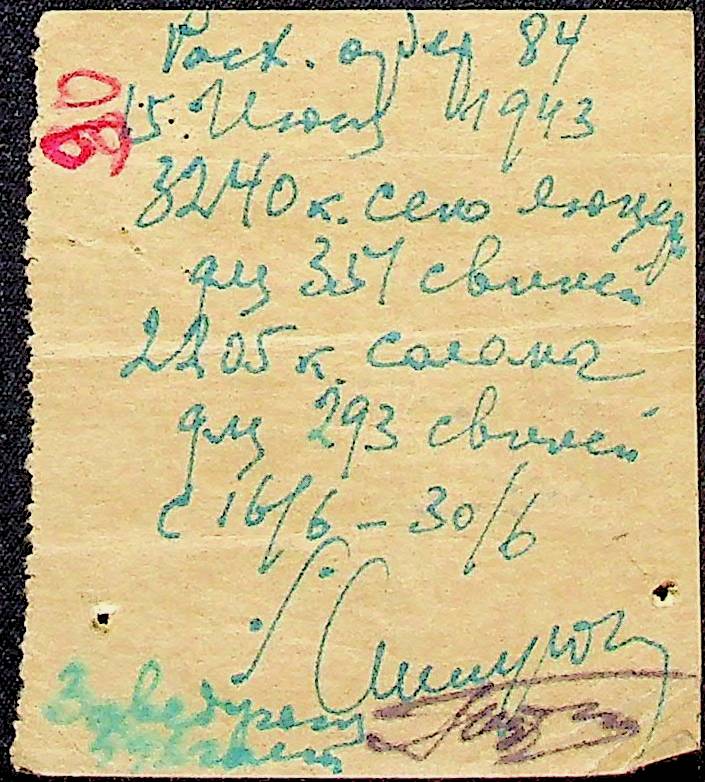 Расх. ордер 84
90
15. Июня 1943
3240 к. сено люцер
для 351 свиней
2205 к. солома
для 293 свиней
с 16/6 – 30/6